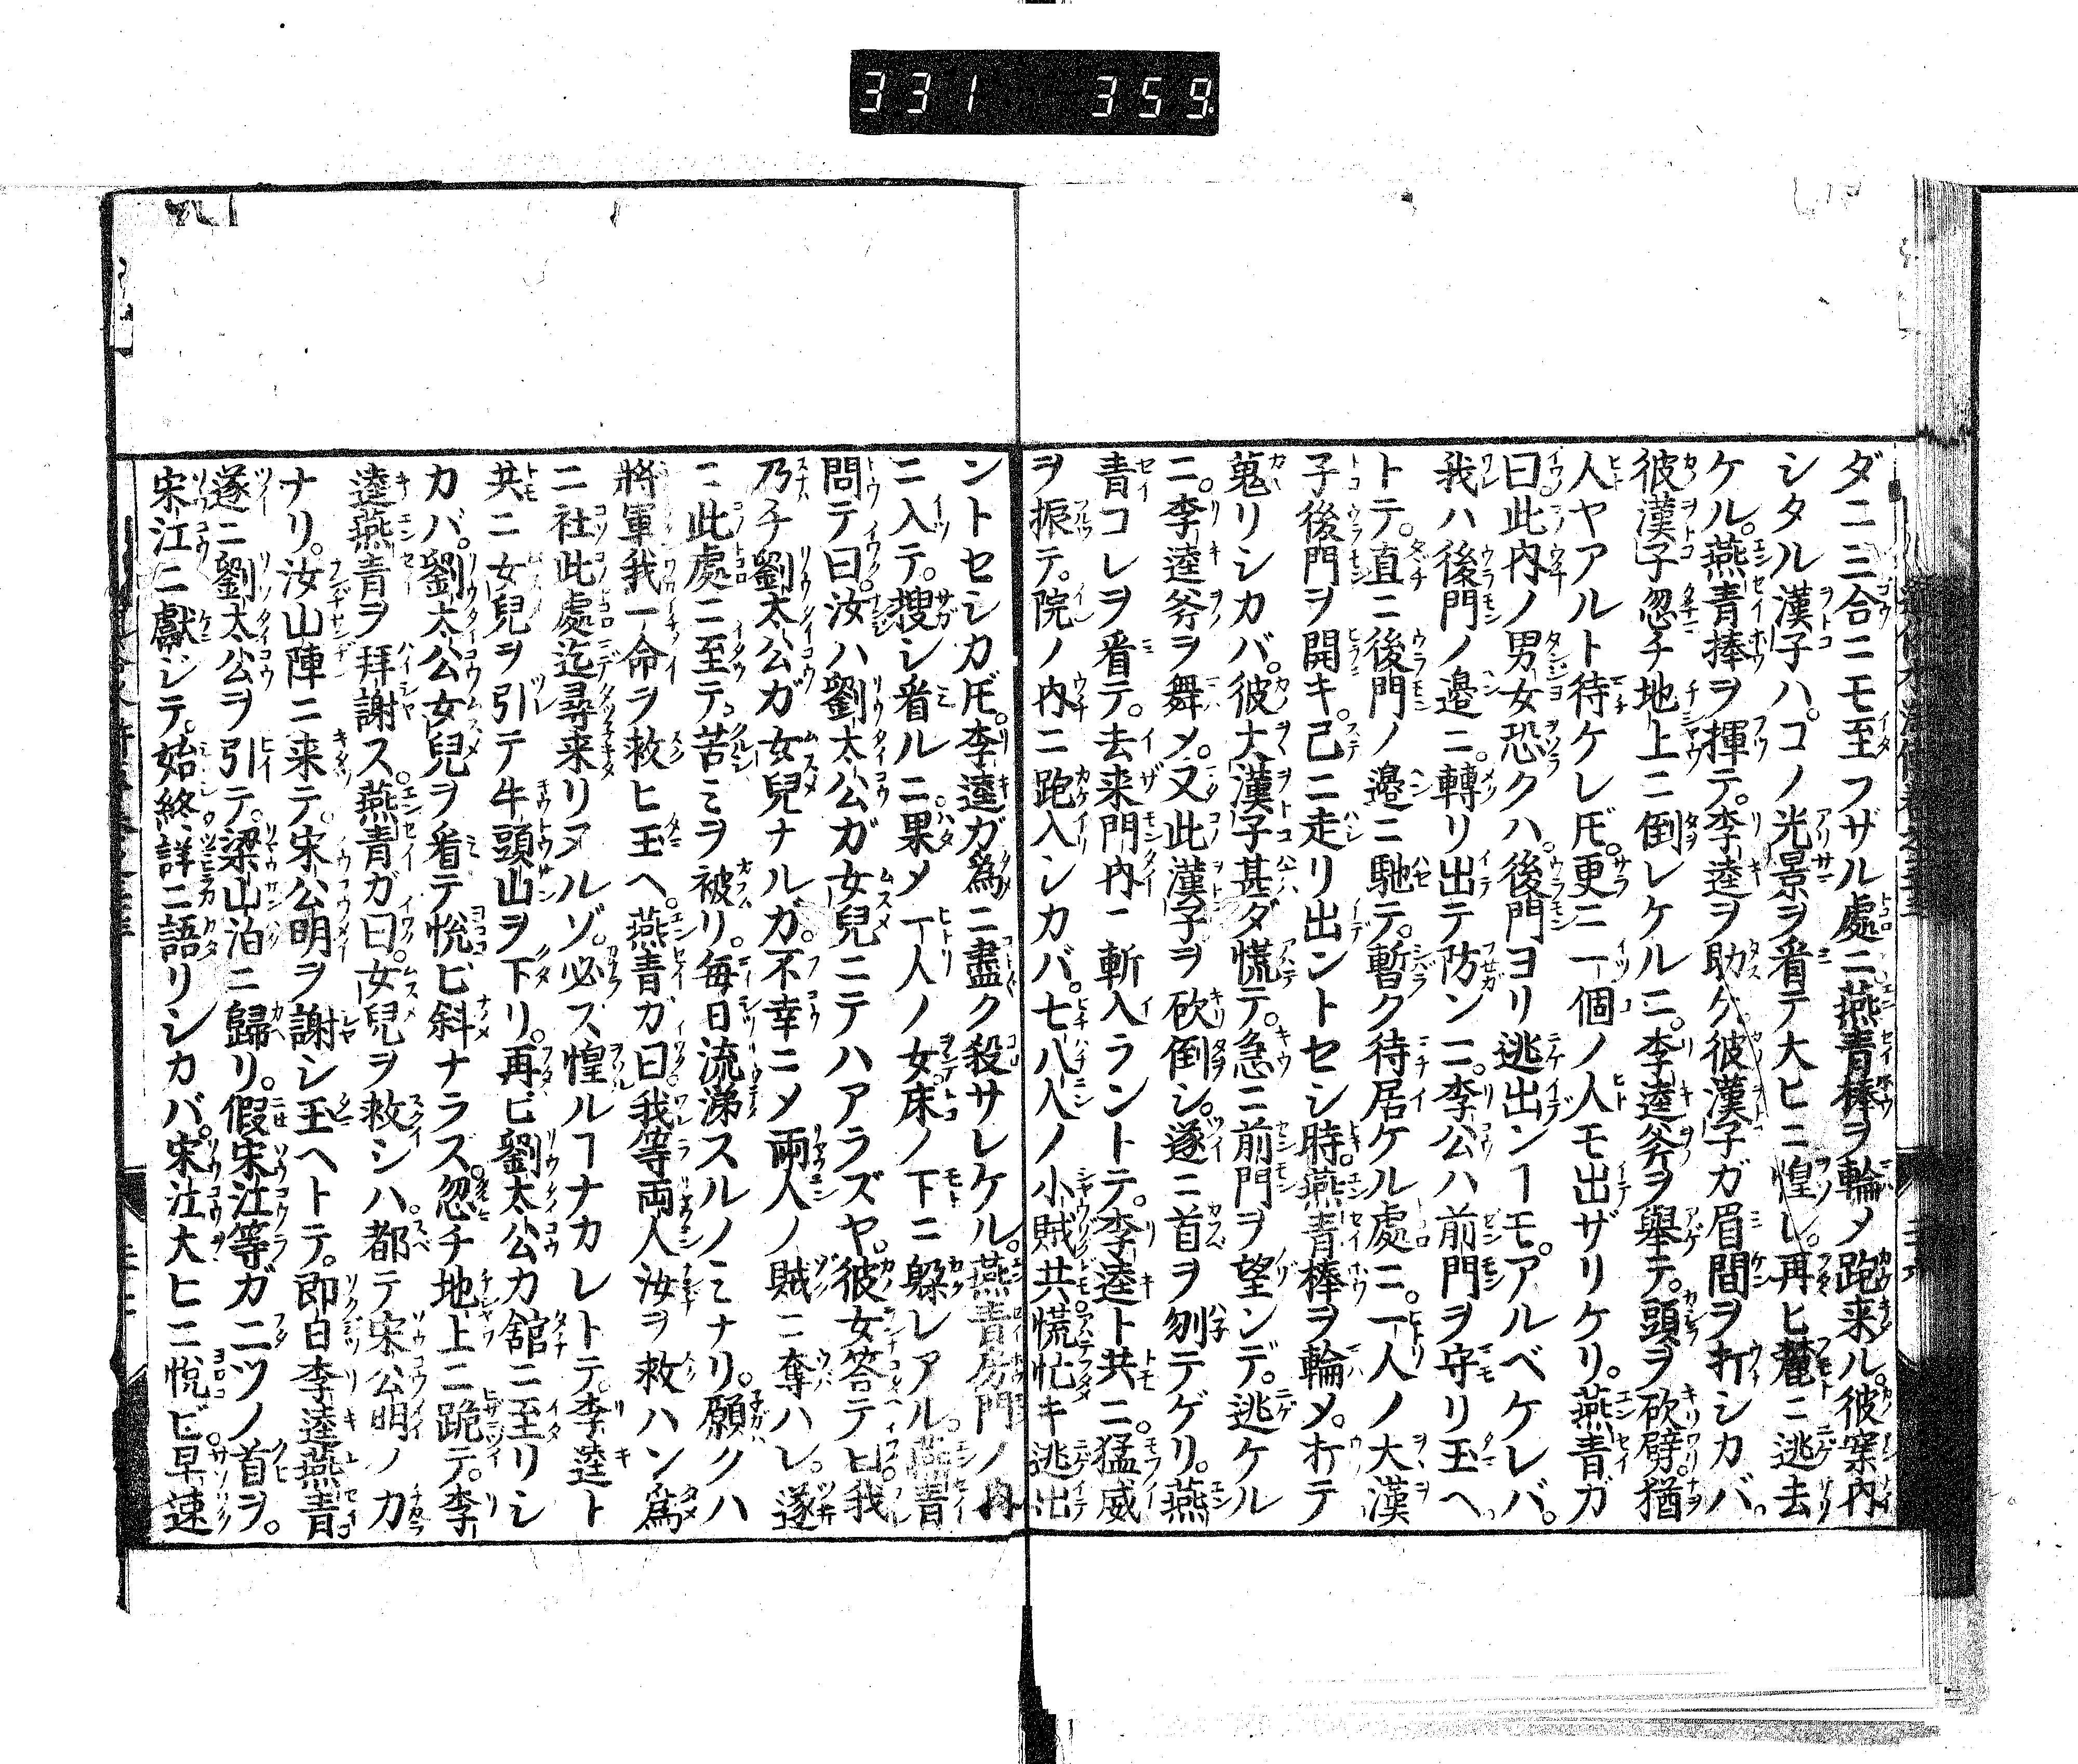 331 359
ダニ三合ニモ至フザル處ニ燕青棒ヲ輪メ跑来ル。彼案内
シタル漢子ハ。コノ光景ヲ看テ大ヒニ惶レ。再ヒ麓ニ逃去
ケル。燕青捧ヲ揮テ。李逵ヲ助ケ。彼漢子ガ眉間ヲ打シカバ。
彼漢子忽チ地上ニ倒レケルニ。李逵斧ヲ舉テ。頭ヲ砍劈。猶
人ヤアルト待ケレ𪜈。更ニ一個ノ人モ出ザリケリ。燕青ガ
曰此内ノ男女恐クハ。後門ヨリ逃出ンヿモ。アルベケレバ。
我ハ後門ノ邉ニ。轉リ出テ防ンニ。李公ハ前門ヲ守リ玉ヘ
トテ。直ニ後門ノ邉ニ馳テ。暫ク待居ケル處ニ。一人ノ大漢
子後門ヲ開キ。己ニ走リ出ントセシ時。燕青棒ヲ輪メ。打テ
蒐リシカバ。彼大漢子甚ダ慌テ。急ニ前門ヲ望ンデ。逃ケル
ニ。李逵斧ヲ舞メ。又此漢子ヲ砍倒シ。遂ニ首ヲ刎テゲリ。燕
青コレヲ看テ。去来門内ニ斬入ラントテ。李逵ト共ニ。猛威
ヲ振テ。院ノ内ニ跑入シカバ。七八人ノ小賊共慌忙キ逃出
ントセシカ𪜈。李逵ガ爲ニ盡ク殺サレケル。燕青房門ノ内
ニ入テ。搜シ看ルニ。果メ一人ノ女。床ノ下ニ躱レアル。燕青
問テ曰。汝ハ劉太公ガ女兒ニテハアラズヤ。彼女答テ曰我
乃チ劉太公ガ女兒ナルガ。不幸ニメ兩人ノ賊ニ奪ハレ。遂
ニ此處ニ至テ。苦ミヲ被リ。毎日流涕スルノミナリ。願クハ
將軍我一命ヲ救ヒ玉ヘ。燕青ガ曰我等両人汝ヲ救ハン爲
ニ社此處迄尋来リヌルゾ。必ス惶ルヿナカレトテ。李逵ト
共ニ女兒ヲ引テ牛頭山ヲ下リ。再ビ劉太公カ舘ニ至リシ
カバ。劉太公女兒ヲ看テ悦ビ斜ナラス。忽チ地上ニ跪テ。李
逵燕青ヲ拜謝ス。燕青ガ曰。女兒ヲ救シハ。都テ宋公明ノ力
ナリ。汝山陣ニ来テ。宋公明ヲ謝シ玉ヘトテ。即日李逵燕青
遂ニ劉太公ヲ引テ。梁山泊ニ歸リ。假宋江等ガ二ツノ首ヲ。
宋江ニ獻ジテ。始終詳ニ語リシカバ。宋江大ヒニ悦ビ。早速